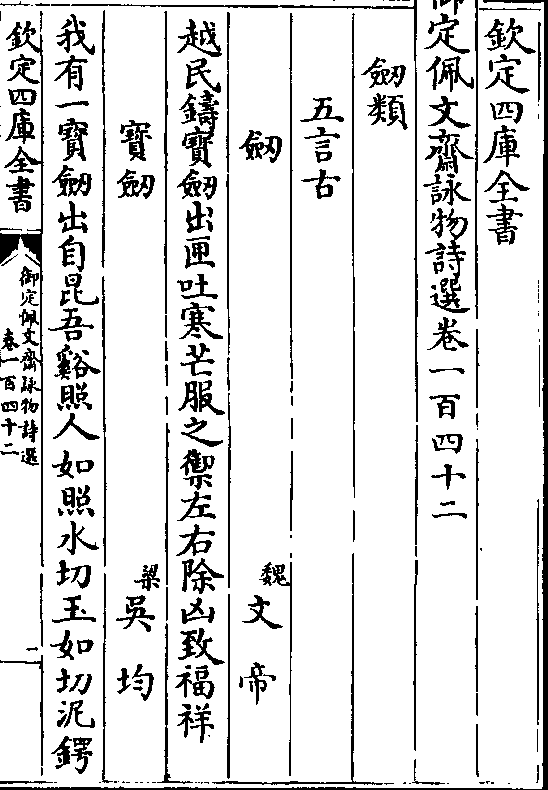 欽定四庫全書
御定佩文齋詠物詩選卷一百四十二
劒類
五言古
劒 魏文帝
越民鑄寶劒出匣吐寒芒服之禦左右除凶致福祥
寶劒 梁吳均
我有一寶劒出自昆吾谿照人如照水切玉如切泥鍔
欽定四庫全書
御定佩文齋詠物詩選
卷一百四十二
一